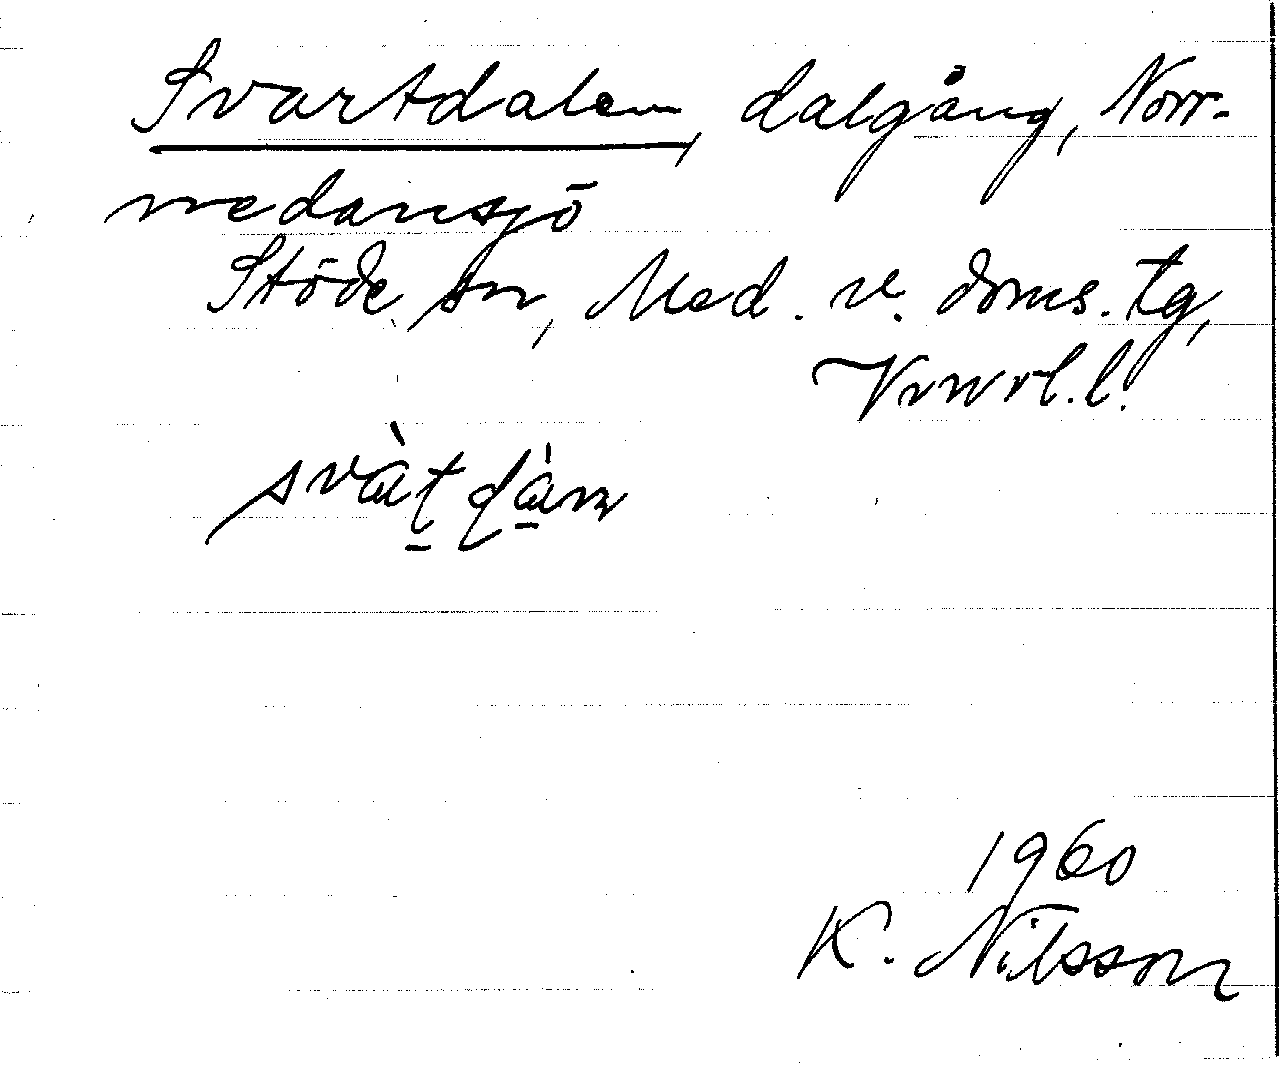 Svartdalen, dalgång, Norr-
nedansjö
Stöde sn, Med. v. doms. tg,
Vnrl. l.
svàt dàn
1960
K. Nilsson